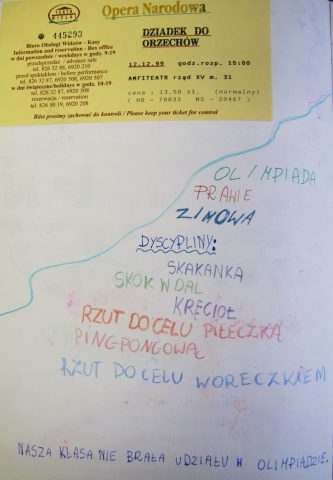 TEATR WIELKI
Opera Narodowa
№ 445293
DZIADEK DO
ORZECHÓW
Biuro Obsługi Widzów - Kasy
Information and reservation - Box office
w dni powszednie / weekdays g. 9-19
przedsprzedaż / advance sale
tel. 826 32 88, 6920 210
przed spektaklem / before performance
tel. 826 32 87, 6920 508, 6920 507
w dni świąteczne/holidays g. 10-19
tel. 826 32 87, 6920 508
rezerwacja / reservation
tel. 826 50 19, 6920 208
12.12.99 godz.rozp. 15:00
AMFITEATR rząd XV m. 31
cena : 13.50 zł. (normalny)
( NB - 78833 NS - 29467 )
Bilet prosimy zachować do kontroli / Please keep your ticket for control
OLIMPIADA
PRAWIE
ZIMOWA
DYSCYPLINY:
SKAKANKA
SKOK W DAL
KRĘCIOŁ
RZUT DO CELU PIŁECZKĄ
PINGPONGOWĄ
RZUT DO CELU WORECZKIEM
NASZA KLASA NIE BRAŁA UDZIAŁU W OLIMPIADZIE.